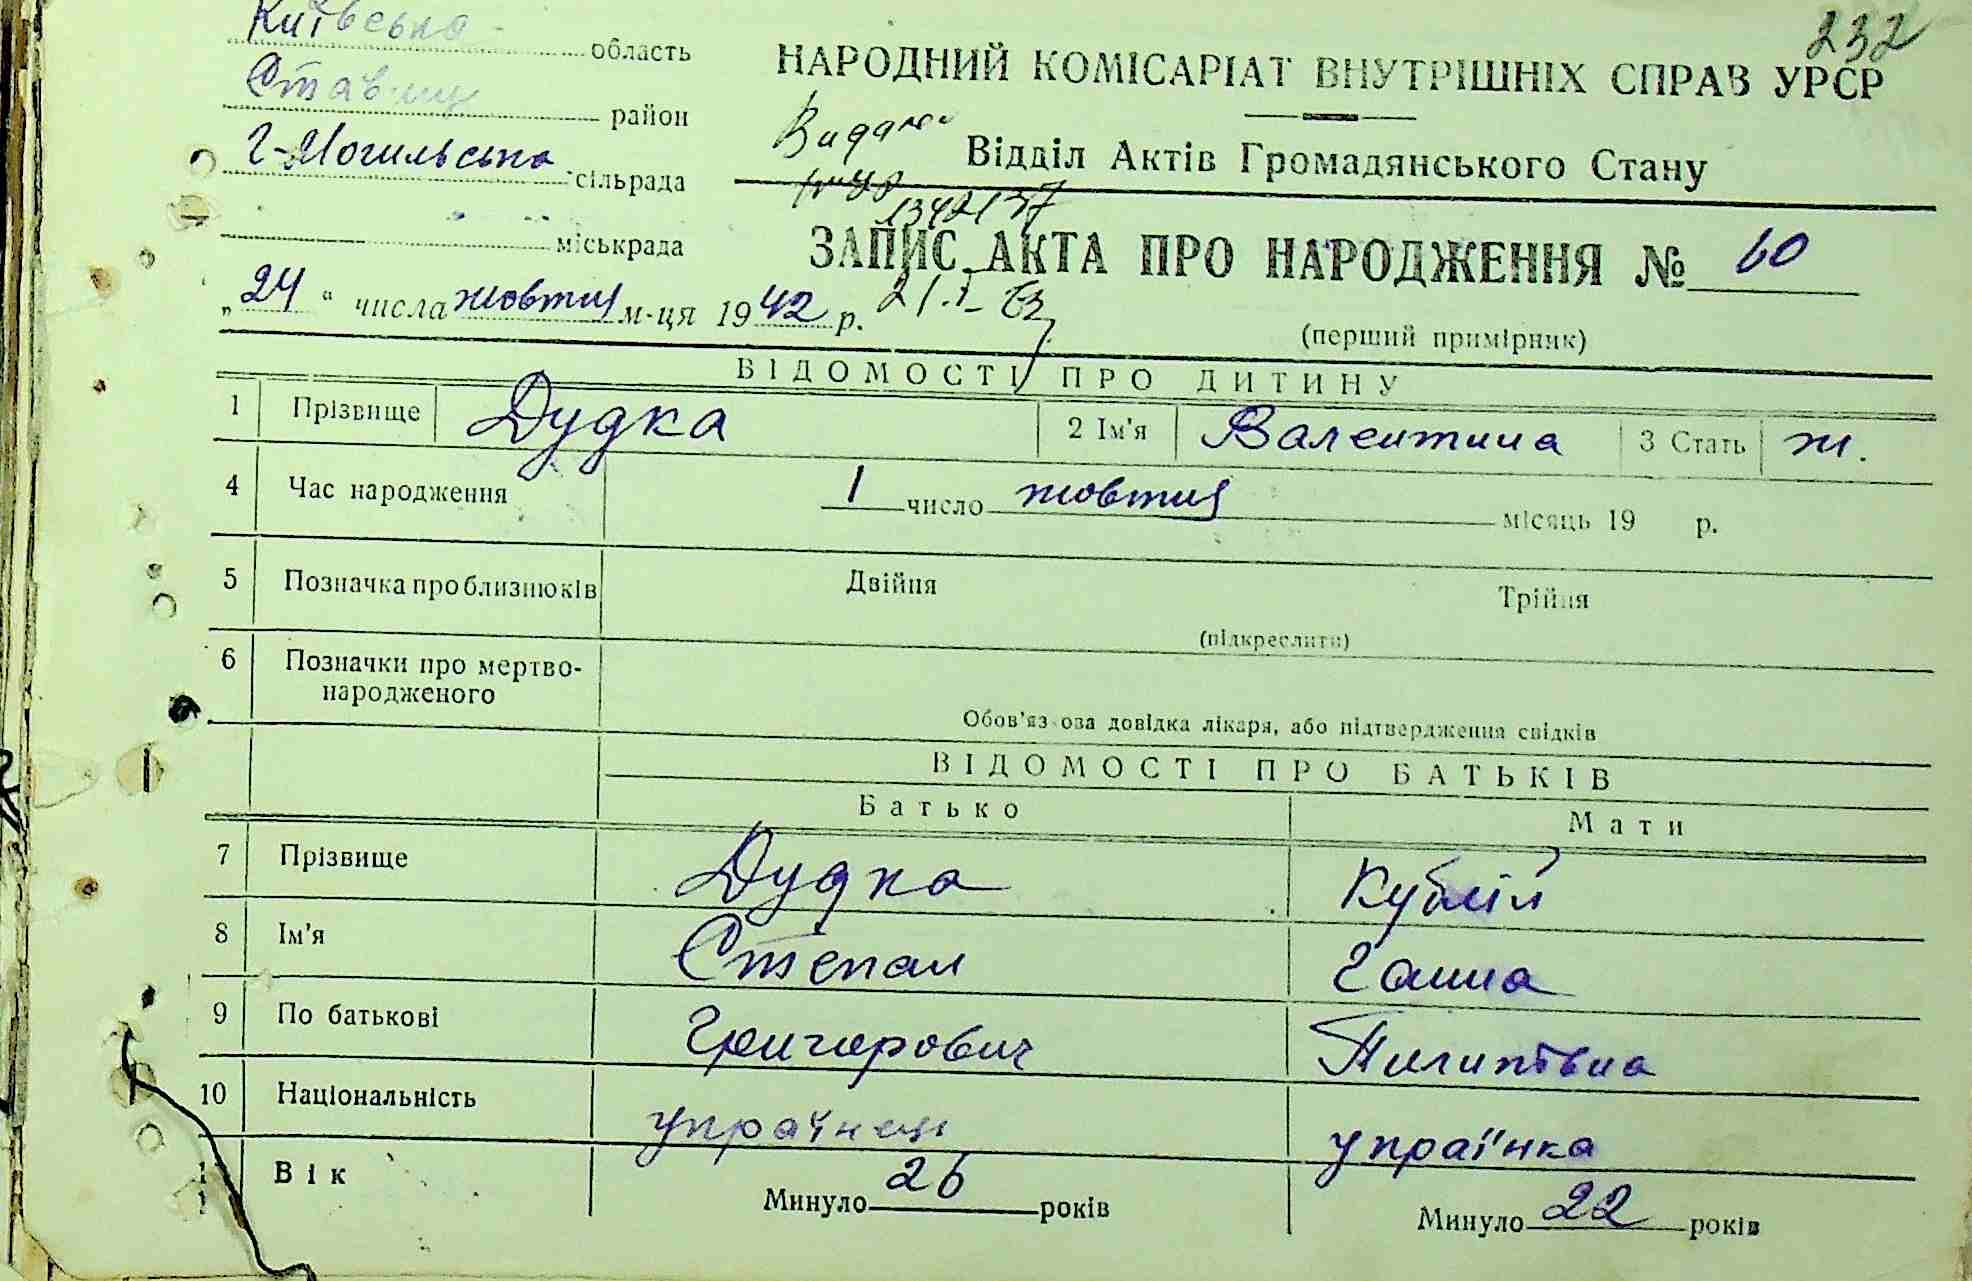 232
Київська область
НАРОДНИЙ КОМІСАРІАТ ВНУТРІШНІХ СПРАВ УРСР
Ставищ район
Відділ Актів Громадянського Стану
Г-Могильська сільрада
Видано
1342137
міськрада
ЗАПИС АКТА ПРО НАРОДЖЕННЯ № 60
„24“ числа жовтня м-ця 1942 р. 21.I-63
(перший примірник)
ВІДОМОСТІ ПРО ДИТИНУ
1 Прізвище Дудка 2 Ім'я Валентина 3 Стать ж.
4 Час народження 1 число жовтня місяць 19 р.
5 Позначка про близнюків Двійня Трійня
(підкреслити)
6 Позначки про мертво-
народженого
Обов'язкова довідка лікаря, або підтвердження свідків
ВІДОМОСТІ ПРО БАТЬКІВ
Батько Мати
7 Прізвище Дудка Кублій
8 Ім'я Степан Ганна
9 По батькові Григорович Пилипівна
10 Національність українець українка
11 Вік Минуло 26 років Минуло 22 років